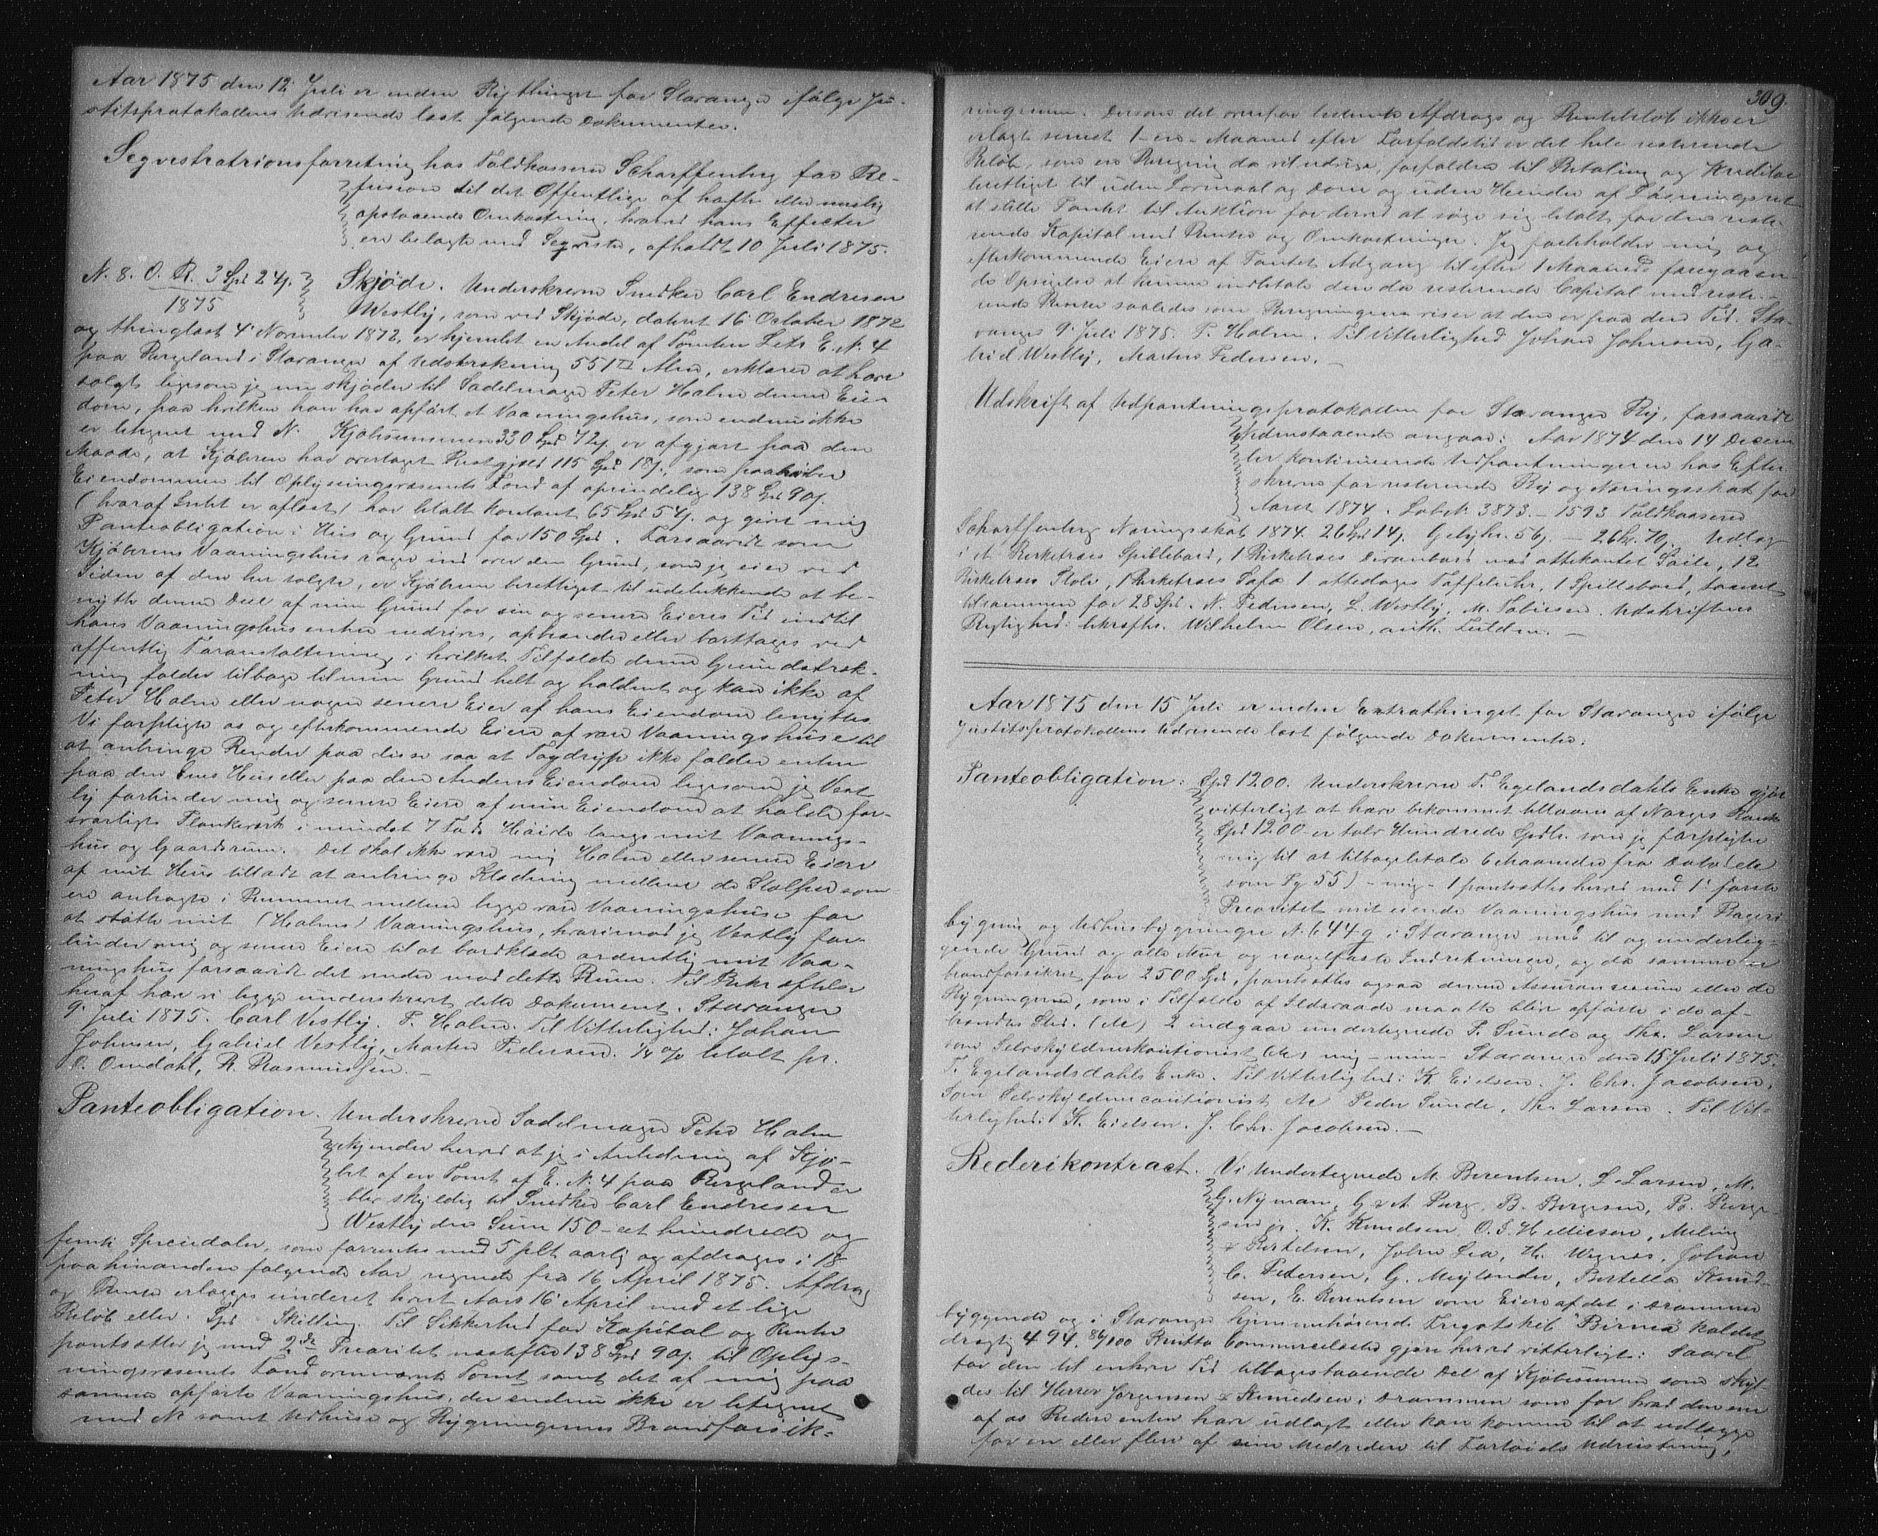 Aar 1875 den 12 Juli er under Bythinget for Stavanger ifølge Ju-
stitsprotokollens Udvisende læst følgende Dokumenter.
Seqvestrationsforretning hos Toldkasserer Scharffenberg for Re-
fusion til det Offentlige af havte eller muelig
opstaaende Omkostning, hvorved hans Effecter
ere belagte med Seqvester, afholdt 10 Juli 1875.
N. 8. O. R. 3 Spd 24 s.
1875
Skjøde. Underskrevne Snedker Carl Endresen
Westly, som ved Skjøde, dateret 16 October 1872
og thinglæst 4 November 1872, er hjemlet en Andel af Tomten Litr. E. N. 4
paa Bergeland i Stavanger af Udstrækning 551 □ Alen, erklærer at have
solgt ligesom jeg nu skjøder til Sadelmager Peter Holm denne Eien-
dom, paa hvilken han har opført et Vaaningshus, som endnu ikke
er betegnet med N. Kjøbesummen 330 Spd 72 s. er afgjort paa den
Maade, at Kjøberen har overtaget Restgjæld 115 Spd 18 s., som paahviler
Eiendommen til Oplysningsvæsenets Fond af oprindelig 138 Spd 90 s.
(hvoraf Intet er aflæst) har betalt kontant 65 Spd 54 s. og givet mig
Panteobligation i Hus og Grund for 150 Spd. Forsaavidt som
Kjøberens Vaaningshus rager ind over den Grund, som jeg eier ved
Siden af den her solgte, er Kjøberen berettiget til udelukkende at be-
nytte denne Deel af min Grund for sin og senere Eieres Tid indtil
hans Vaaningshus enten nedrives, afbrænder eller borttages ved
offentlig Foranstaltning, i hvilket Tilfælde denne Grundstræk-
ning falder tilbage til min Grund helt og holdent og kan ikke af
Peter Holm eller nogen senere Eier af hans Eiendom benyttes.
Vi forpligte os og efterkommende Eiere af vare Vaaningshuse til
at anbringe Render paa disse saa at Tagdryp ikke falder enten
paa den Enes Hus eller paa den Andens Eiendom ligesom jeg Vest-
ly forbinder mig og senere Eiere af min Eiendom at holde for-
svarligt Plankeværk i mindst 7 Fods Høide langs mit Vaanings-
hus og Gaardsrum. Det skal ikke være mig Holm eller senere Eiere
af mit Hus tilladt at anbringe Klædning mellem de Stolper som
ere anbragte i Rummet mellem begge vare Vaaningshuse for
at støtte mit (Holms) Vaaningshus, hvorimod jeg Vestly for-
binder mig og senere Eiere til at bordklæde ordentlig mit Vaa-
ningshus forsaavidt det vender mod dette Rum. Til Bekræftelse
heraf har vi begge underskrevet dette Dokument. Stavanger
9 Juli 1875. Carl Vestly. P. Holm. Til Vitterlighed: Johan
Johnsen, Gabriel Vestly, Morten Pedersen. ¼ % betalt fr.
O. Omdahl, R. Rasmussen.
Panteobligation. Underskrevne Sadelmager Peter Holm
erkjender herved at jeg i Anledning af Kjø-
bet af en Tomt af E. N. 4 paa Bergeland er
blev skyldig til Snedker Carl Endresen
Westly den Sum 150 - et hundrede og
femti Speciedaler, som forrentes med 5 pCt aarlig og afdrages i 18
paa hinanden følgende Aar regnet fra 16 April 1875. Afdrag
og Rente erlægges inden hvert Aars 16 April med et lige
Beløb eller. Spd. Skilling. Til Sikkerhed for Kapital og Renter
pantsætter jeg med 2de Prioritet næstefter 138 Spd 90 s. til Oplys-
ningsvæsenets Fond ovennævnte Tomt samt det af mig paa
samme opførte Vaaningshus, der endnu ikke er betegnet
med N samt Udhuse og Bygningernes Brandforsik-
309.
ringssum. Dersom det ovenfor bestemte Afdrags og Rentebeløb ikke er
erlagt senest 1 - en - Maaned efter Forfaldstid er det hele resterende
Beløb, som en Beregning da vil udvise, forfalden til Betaling og Kreditor
berettiget til uden Lovmaal og Dom og uden Hinder af Løsningsret
at stille Pantet til Auktion for derved at søge sig betalt for den reste-
rende Kapital med Renter og Omkostninger. Jeg forbeholder mig og
efterkommende Eiere af Pantet Adgang til efter 1 Maaneds foregaaen-
de Opsigelse at kunne indbetale den da resterende Capital med reste-
rende Renter saaledes som Beregningen viser at den er paa den Tid. Sta-
vanger 9 Juli 1875. P. Holm. Til Vitterlighed Johan Johnsen, Ga-
briel Westly, Morten Pedersen.
Udskrift af Udpantningsprotokollen for Stavanger By, forsaavidt
Nedenstaaende angaar: Aar 1874 den 14 Decem-
ber kontinuerede Udpantningerne hos Efter-
skrevne for resterende By og Næringsskat for
Aaret 1874. Løbe N. 3873 - 1593 Toldkasserer
Scharffenberg Næringsskat 1874. 26 Spd 14 s. Gebyhr. 56 s. - 26 Sp. 70. Udlæg
i et Birketræes Spillebord, 1 Birketræes Divanbord med ottekantet Søile, 12
Birketræes Stole, 1 Birketræes Sofa 1 ottedages Taffeluhr, 1 Spillebord, taxeret
tilsammen for 28 Spd. N. Pedersen, L. Westly, M. Tobiesen. Udskriftens
Rigtighed bekræftes. Wilhelm Olsen, auth. Fuldm.
Aar 1875 den 15 Juli er under Extrathinget for Stavanger ifølge
Justitsprotokollens Udvisende læst følgende Dokumenter.
Panteobligation: Spd 1200. Underskrevne T. Egelandsdahls Enke gjør
vitterligt at have bekommet tillaans af Norges Bank
Spd 1200 er tolv Hundrede Spdlr. som jeg forpligter
mig til at tilbagebetale 6 Maaneder fra Dato (de
som Pg 55) - mig - 1 pantsættes herved med 1' første
Prioritet mit eiende Vaaningshus med Bageri-
bygning og Udhusbygninger N. 644g i Stavanger med til og underlig-
gende Grund og alle Mur og nagelfaste Indretninger, og da samme er
brandforsikret for 2500 Spd, pantsættes ogsaa denne Assurancesum eller de
Bygninger, som i Tilfælde af Ildsvaade maatte blive opførte i de af-
brændtes Sted. (etc) 2 indgaar undertegnede P. Sunde og Ths. Larsen
som Selvskyldnerkautionist (etc) mig - min - Stavanger den 15 Juli 1875.
T. Egelandsdahls Enke. Til Vitterlighed: K. Eielsen. J. Chr. Jacobsen.
Som Selvskyldnercautionist etc Peder Sunde, Ths. Larsen. Til Vit-
terlighed: K. Eielsen. J. Chr. Jacobsen.
Rederikontract. Vi Undertegnede M. Berentsen, L. Larsen, M.
G. Nyman, G & A Berg, B. Bergesen, B. Berge
sen jr. K. Knudsen O. S. Helliesen, Meling
& Bertelsen, John Lea, H. Wignæs, Johan
C. Pedersen, G. Meylander, Bertella Knud-
sen, E. Berentsen som Eiere af det i Drammen
byggende og i Stavanger hjemmehørende Fregatskib "Birma" kaldet
drægtig 494. 86/100 Brutto Commercelæster gjøre herved vitterligt: Saavel
for den til enhver Tid tilbagestaaende Del af Kjøbesummen som skyl-
des til Herrer Jørgensen & Knudsen i Drammen som for hvad den ene
af os Redere enten have udlagt eller kan komme til at udlægge
for en eller flere af sine Medredere til Fartøiets Udrustning,